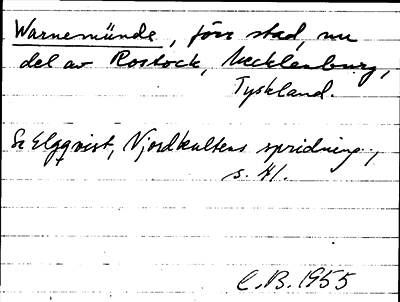 Warnemünde, förr stad, nu
del av Rostock, Mecklenburg,
Tyskland.
Se Elgqvist, Njordkultens spridning,
s. 41.
C.B. 1955